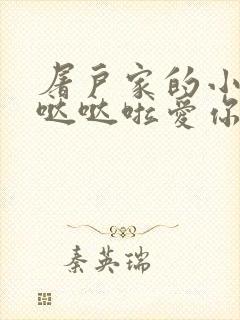 屠户家的小
哒哒啦爱你
秦英瑞